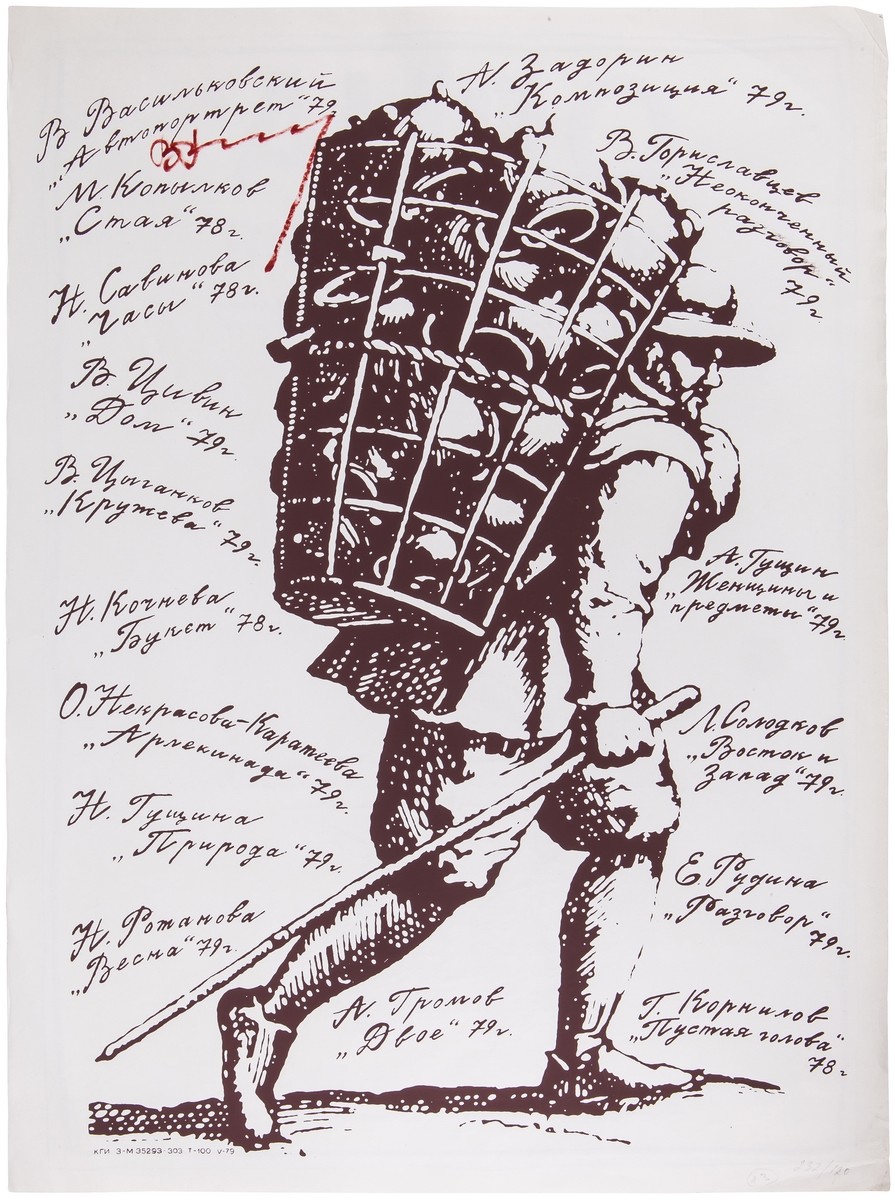 В. Васильковский
„Автопортрет“ 79
М. Копылков
„Стая“ 78 г.
Н. Савинова
„Часы“ 78 г.
В. Цивин
„Дом“ 79 г.
В. Цыганков
„Кружева“ 79 г.
Н. Кочнева
„Букет“ 78 г.
О. Некрасова-Каратеева
„Арлекинада“ 79 г.
Н. Гущина
„Природа“ 79 г.
Н. Ротанова
„Весна“ 79 г.
А. Громов
„Двое“ 79 г.
А. Задорин
„Композиция“ 79 г.
В. Гориславцев
„Неоконченный
разговор“
79 г.
А. Гущин
„Женщины и
предметы“ 79 г.
Л. Солодков
„Восток и
Запад“ 79 г.
Е. Рудина
„Разговор“
79 г.
Г. Корнилов
„Пустая голова“
78 г
КГИ З-М 35293-303 Т-100 V-79